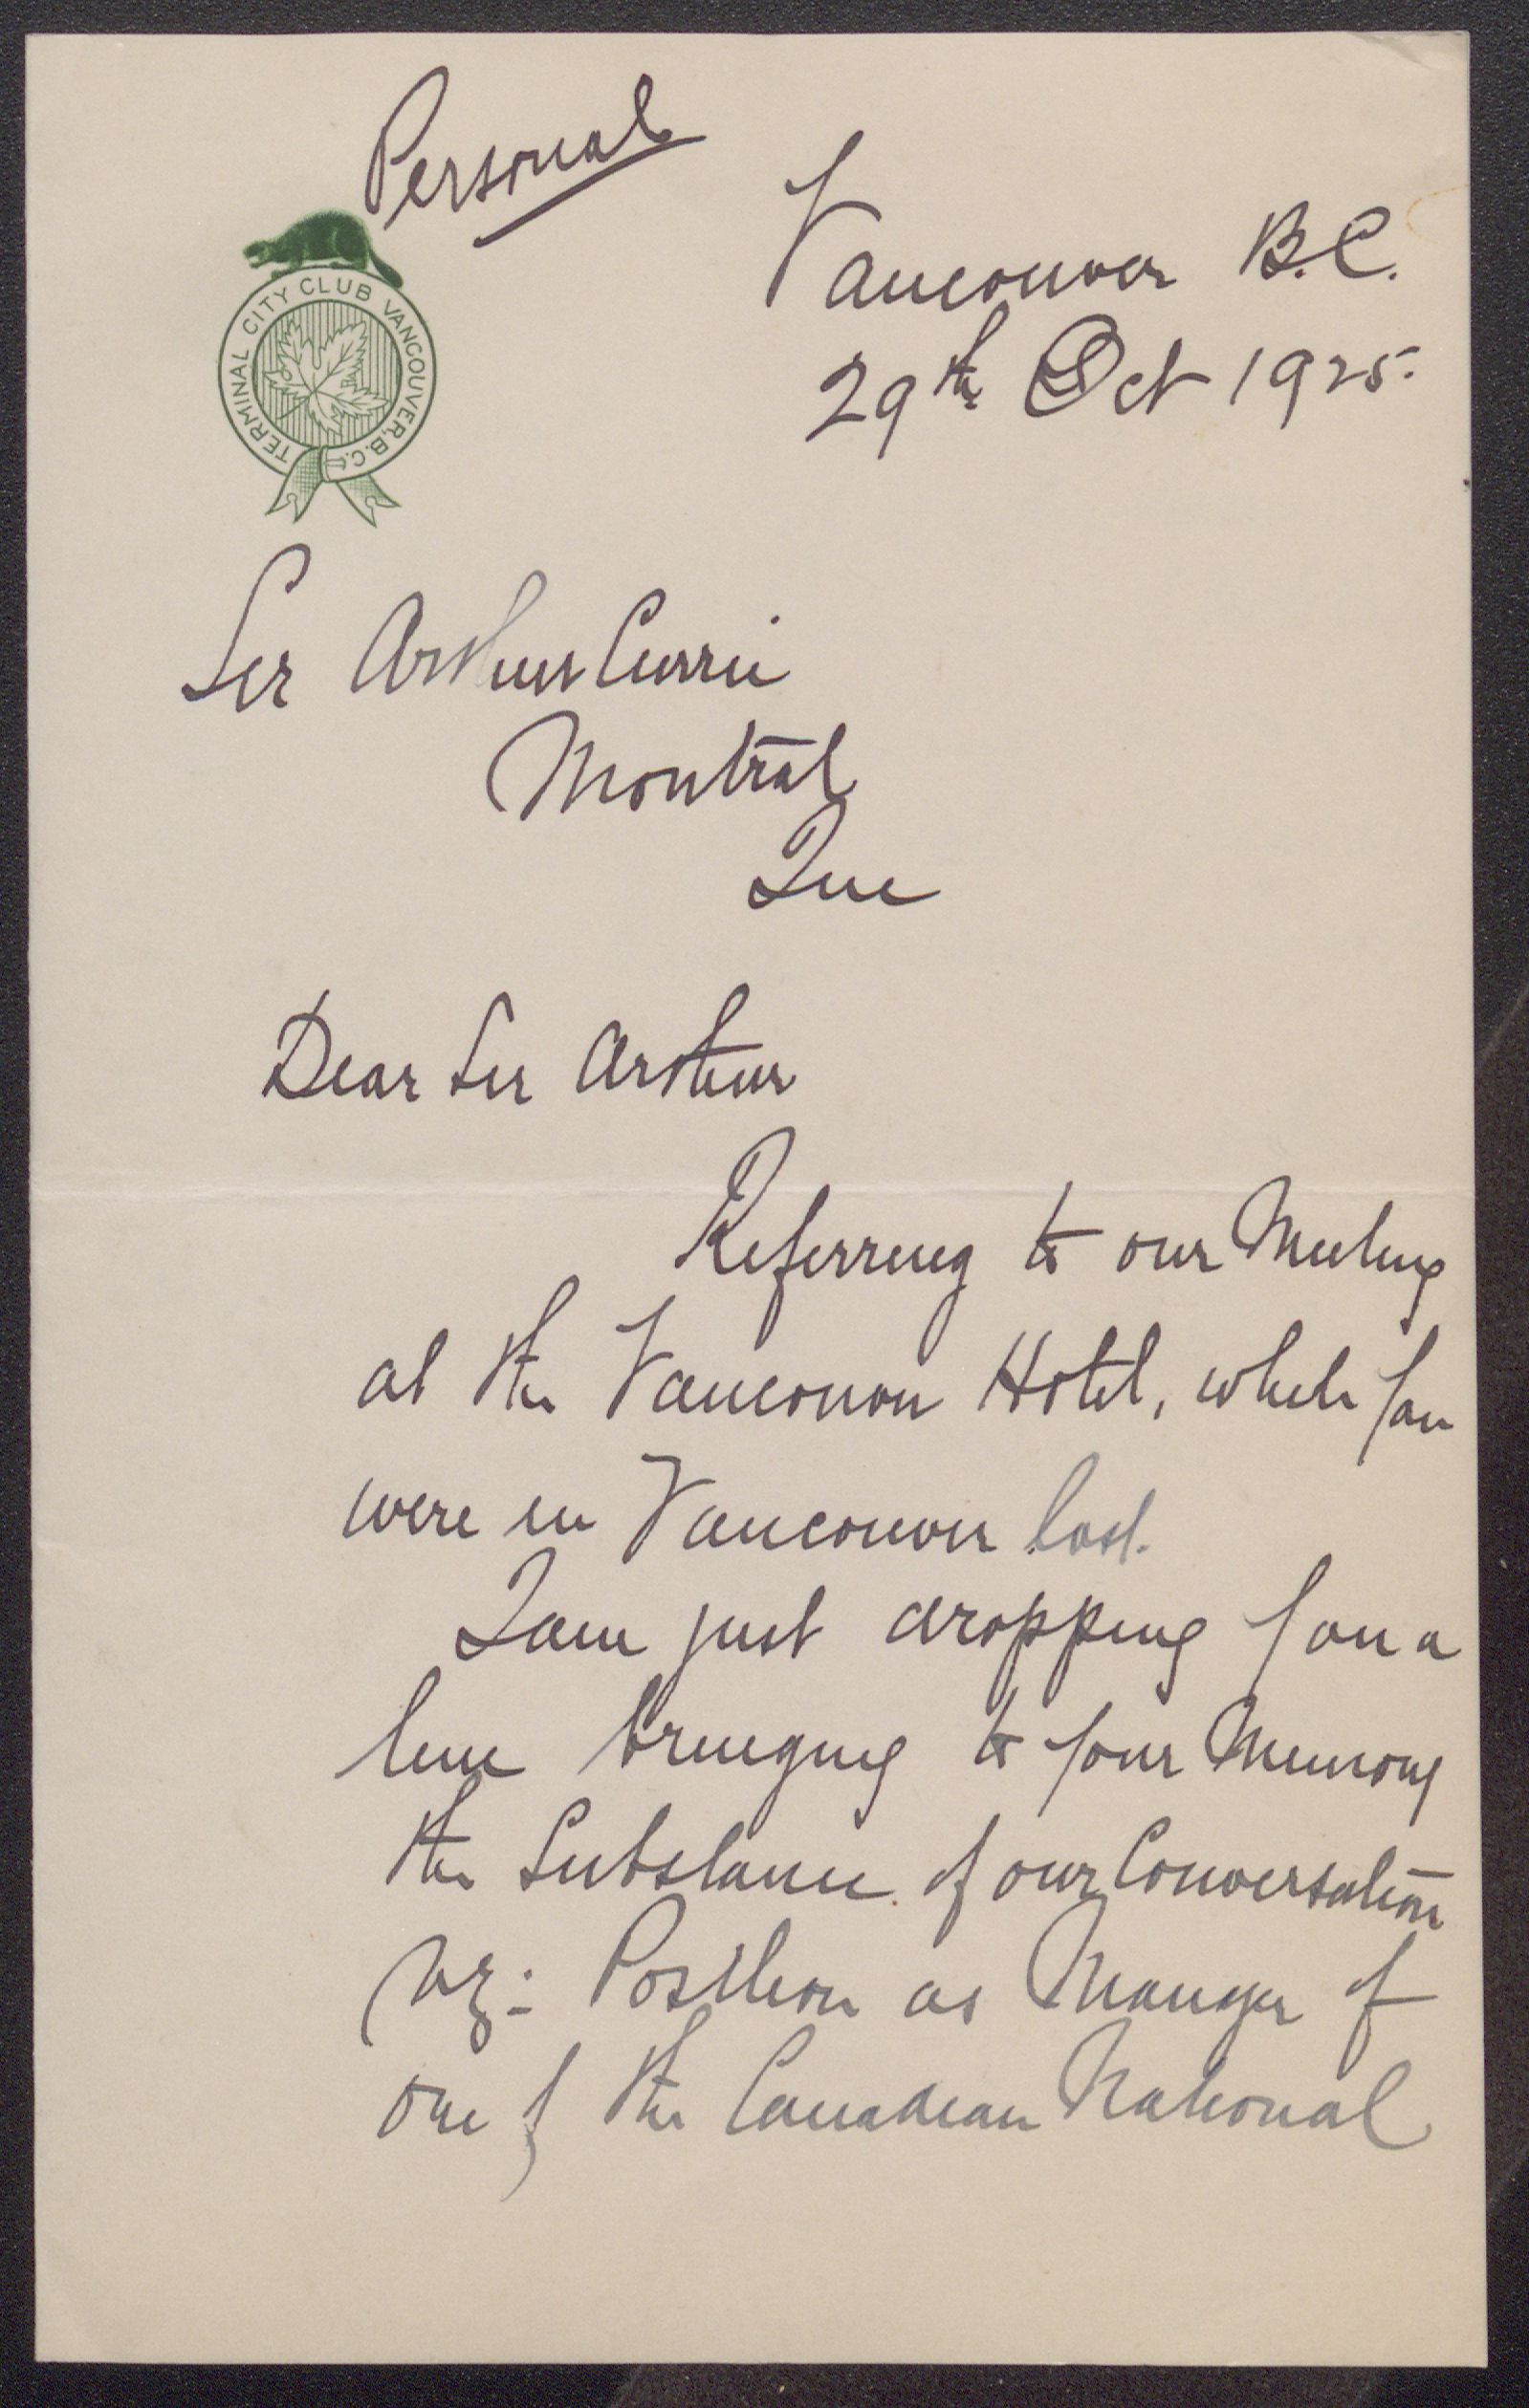 Personal
TERMINAL CITY CLUB VANCOUVER. B.C.
Vancouver B.C.
29th Oct 1925.
Sir Arthur Currie
Montreal
Que
Dear Sir Arthur
Referring to our Meeting
at the Vancouver Hotel, while you
were in Vancouver last.
I am just dropping you a
line bringing to your Memory
the Substance of our Conversation
viz:- Position as Manager of
one of the Canadian National